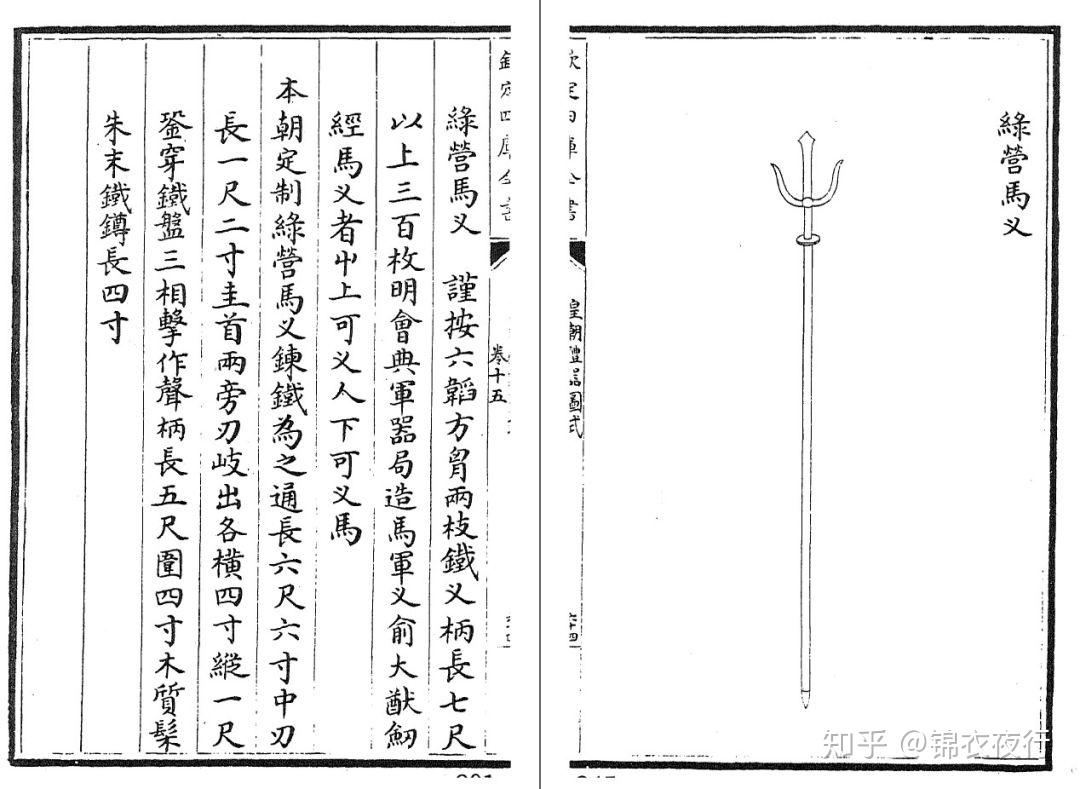 綠營馬义
皇朝禮器圖式
卷十五
綠營馬义　謹按六韜方胷兩枝鐵义柄長七尺
以上三百枚明會典軍器局造馬軍义俞大猷劒
經馬义者中上可义人下可义馬
本朝定制綠營馬义鍊鐵為之通長六尺六寸中刃
長一尺二寸圭首兩旁刃岐出各橫四寸縱一尺
銎穿鐵盤三相擊作聲柄長五尺圍四寸木質髹
朱末鐵鐏長四寸
知乎 @锦衣夜行